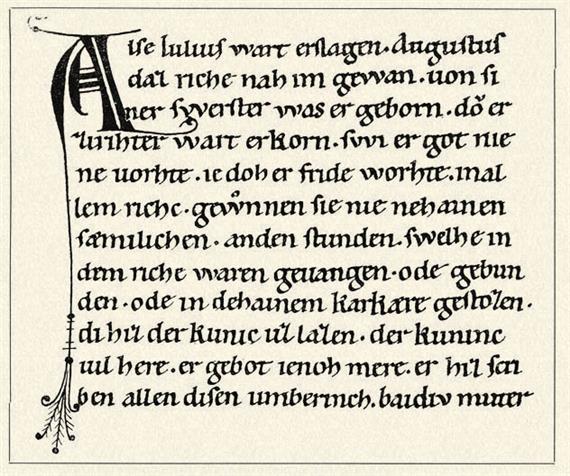 Alse Iulius wart erslagen. Augustus
daz riche nah im gewan. uon si
ner swester was er geborn. dŏ er
zurihter wart erkorn. swi er got nie
ne uorhte. ie doh er fride worhte. in al
lem riche. gewͦnnen sie nie nehainen
sæmilichen. anden stunden. swelhe in
dem riche waren geuangen. ode gebun
den. ode in dehainem karkære gestozen.
di hiz der kunic uz lazen. der kuninc
uil here. er gebot ienoh mere. er hiz scri
ben allen disen umberinch. baidiv muter